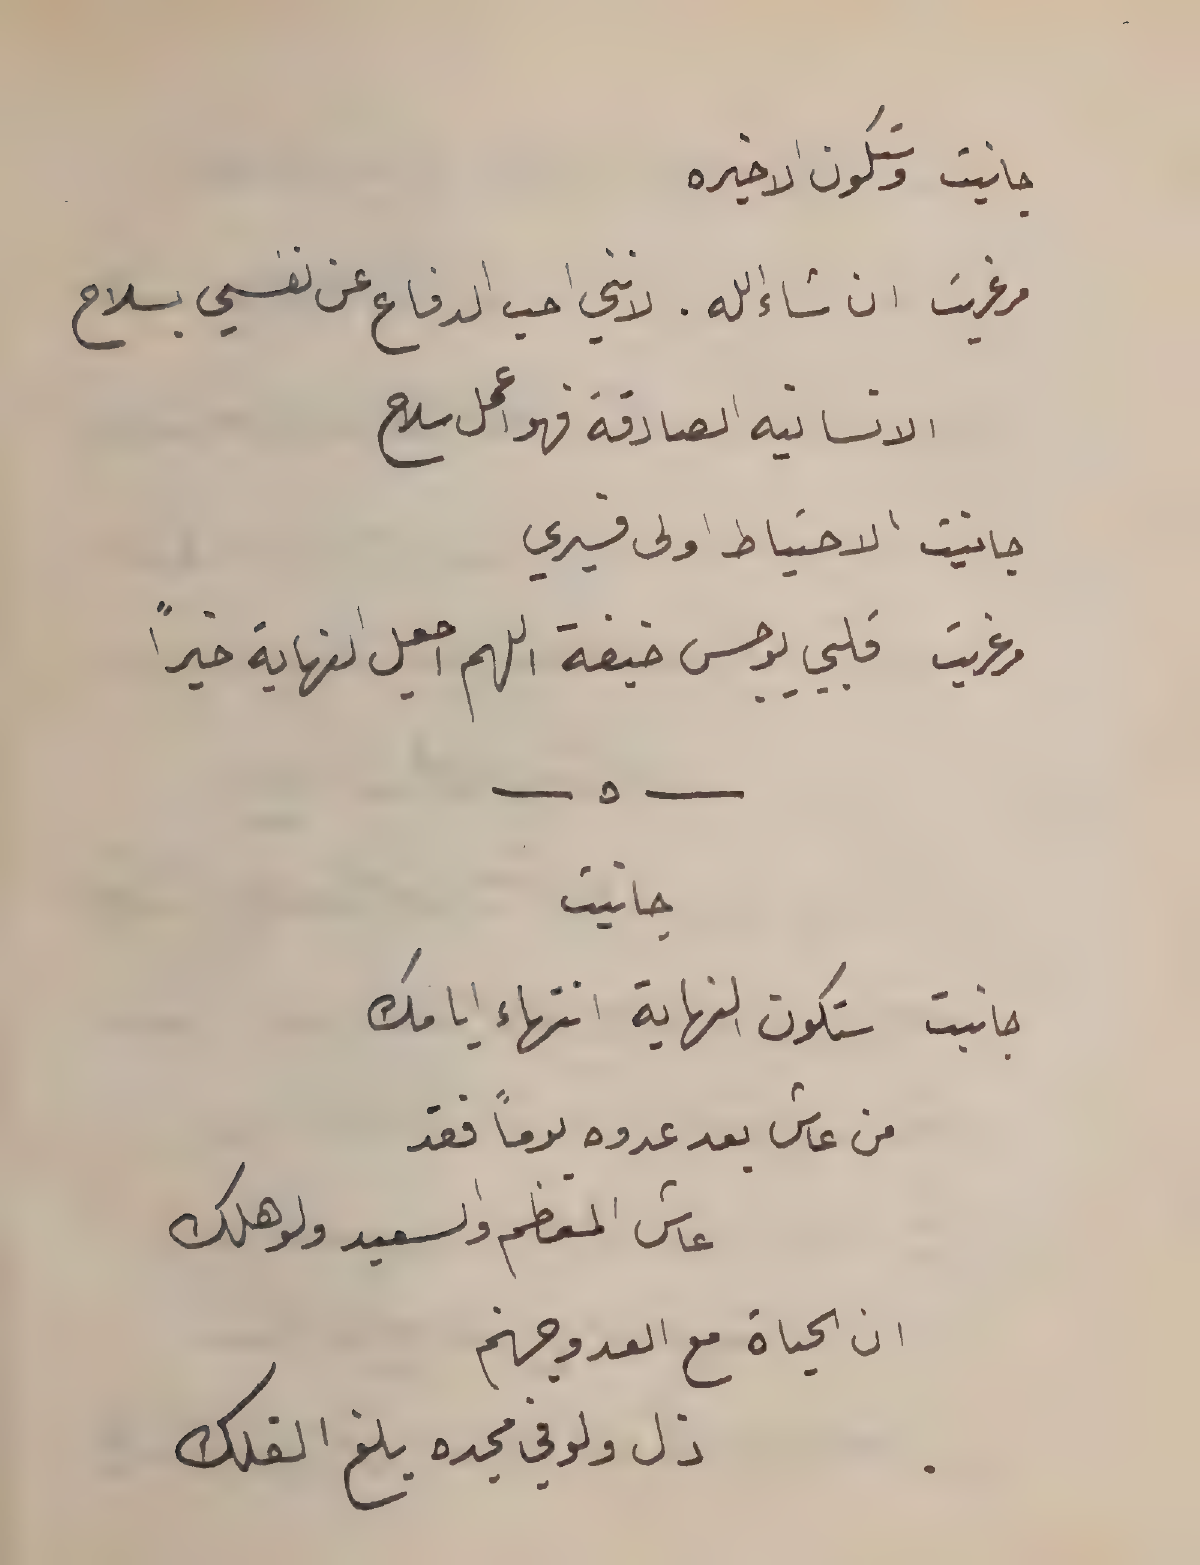 جانيت وستكون الاخيره
مرغريت ان شاء الله . لانني احب الدفاع عن نفسي بسلاح
الانسانيه الصادقة فهو اكمل سلاح
جانيت الاحتياط اولى فسيري
مرغريت قلبي يوجس خيفة اللهم اجعل النهاية خيراً
— ه —
جانيت
جانيت ستكون النهاية انتهاء ايامك
من عاش بعد عدوه يوماً فقد
عاش المعظم والسعيد ولو هلك
ان الحياة مع العدو جهنم
ذل ولو في مجده بلغ الفلك